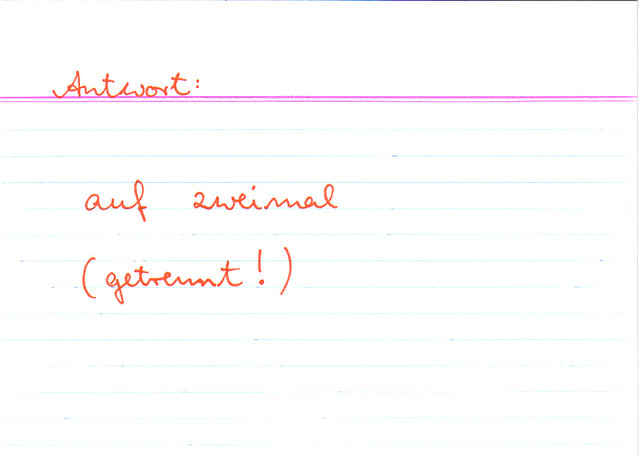 Antwort:
auf zweimal
(getrennt!)